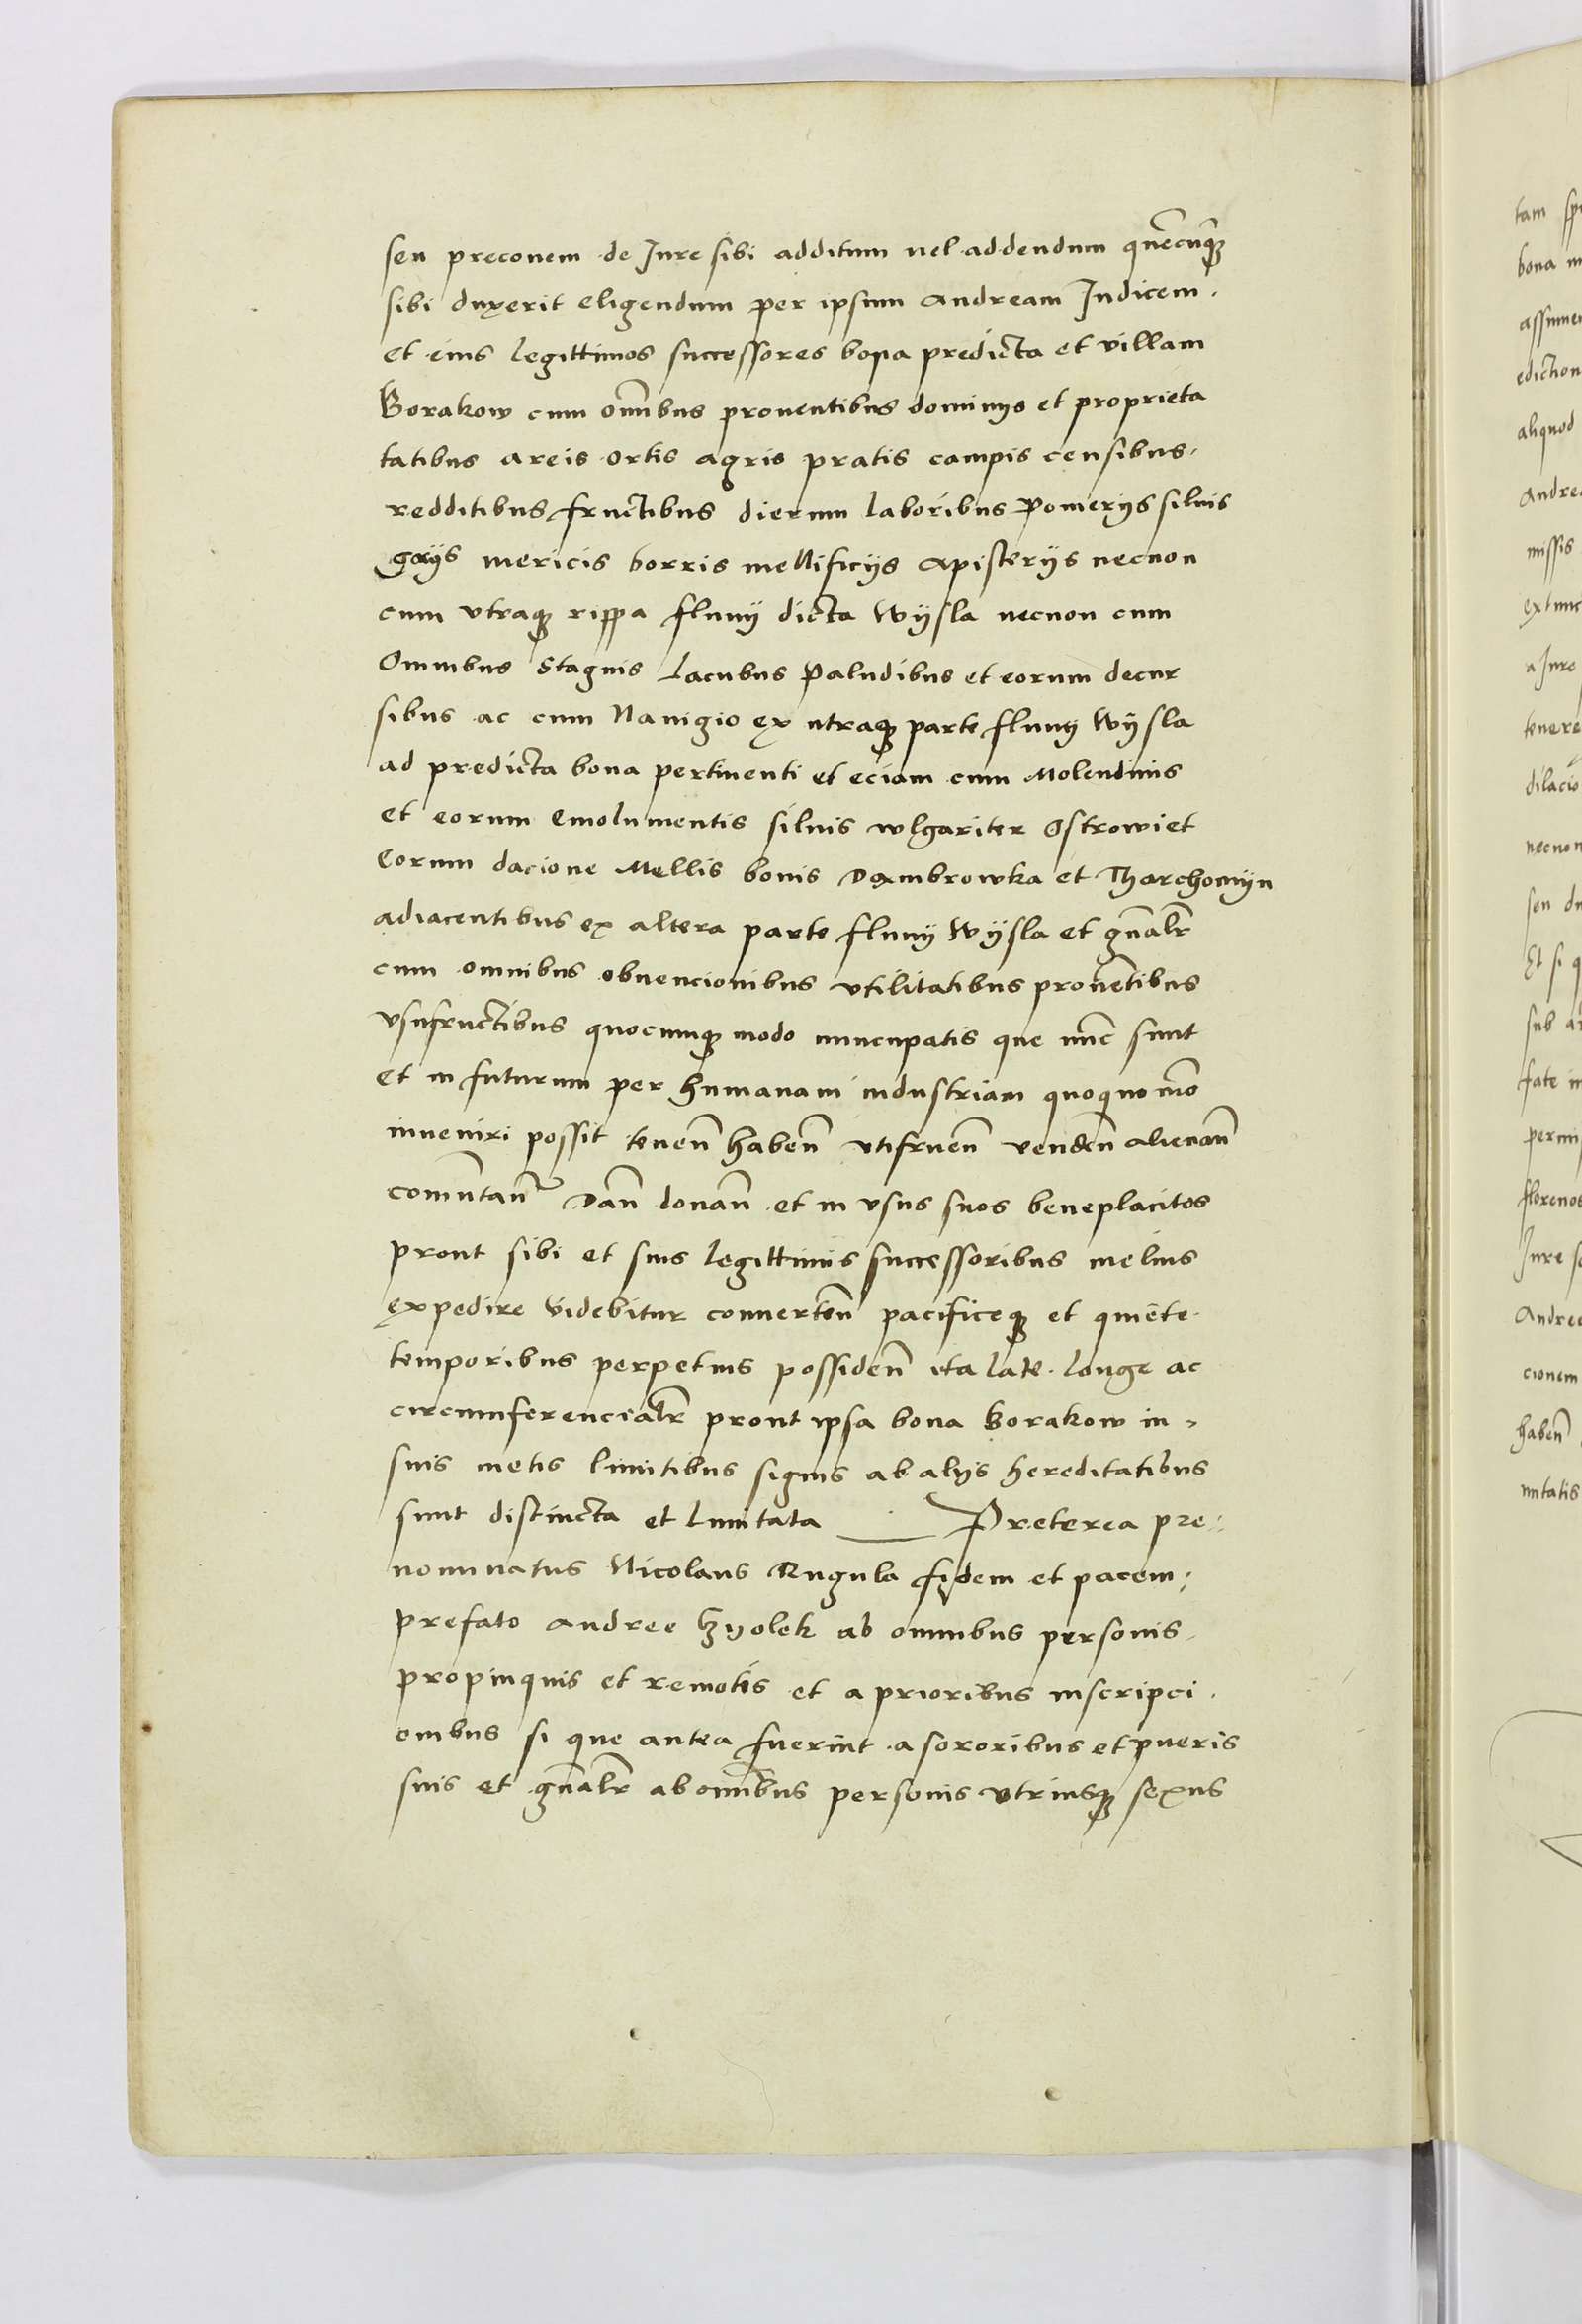 seu preconem de Jure sibi additum uel addendum quẽcũq
sibi duxerit eligendum per ipsum Andream Judicem.
et eius legittimos successores bona predicta et villam
Borakow cum om̃ibus prouentibus dominijs et proprieta
tatibus areis ortis agris pratis campis censibus
redditibus fructibus dierum laboribus Pomerijs siluis
gaijs mericis borris mellificijs Apisterijs necnon
cum vtraq rippa fluuij dicta Wijsla necnon cum
Omnibus Stagnis Lacubus Paludibus et eorum decur
sibus ac cum Nauigio ex utraq parte fluuij Wijsla
ad predicta bona pertinenti et eciam cum Molendinis
et eorum Emolumentis siluis wlgariter Ostrowi et
Eorum dacione Mellis bonis Dambrowka et Tharchomijn
adiacentibus ex altera parte fluuij Wijsla et gñalr̃
cum omnibus obuencionibus vtilitatibus prouẽtibus
vsufructibus quocumq modo nuncupatis que nũc sunt
et in futurum per humanam industriam quoquo mõ
inueniri possit teneñ habeñ vtifrueñ vendeñ alienañ
comũtañ Dañ donañ et in vsus suos beneplacitos
prout sibi et suis legittimis successoribus melius
expedire videbitur conuerteñ pacificeq et quiete
temporibus perpetuis possideñ ita late. longe ac
circumferencialr̃ prout ipsa bona Borakow in
suis metis limitibus signis ab alijs hereditatibus
sunt distincta et limitata Preterea pre
nominatus Nicolaus Rugula fidem et pacem
prefato Andree Czyolek ab omnibus personis
propinquis et remotis et a prioribus inscripci
onibus si que antea fuerint a sororibus et pueris
suis et gñalr̃ ab om̃ibus personis vtriusq sexus
tam
bona
assumen
ediction
aliquod
Andre
missis
extunc
a Jure
tenere
dilacio
necnon
seu du
Et si q
sub
fate
permi
florenos
Jure
Andree
cionem
habeñ
nitatis